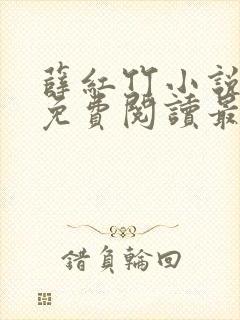 薛紅竹小說
免費閱讀最
錯負輪回